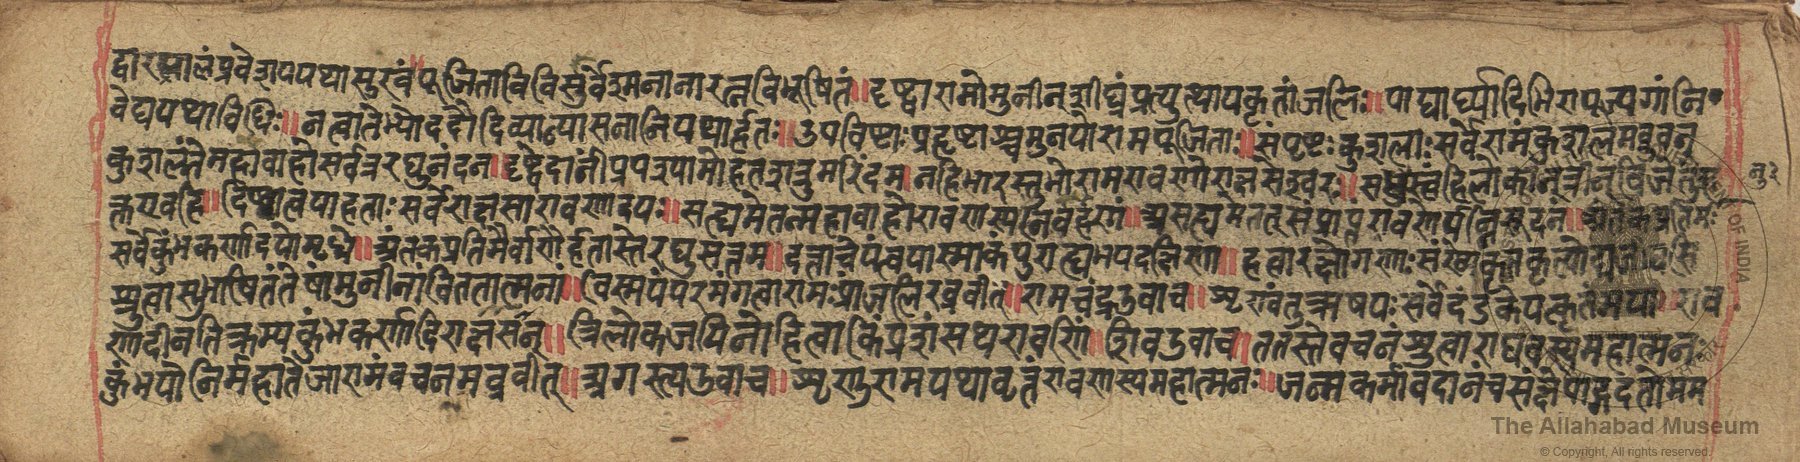 द्वारपालं प्रवेशयपथासुखं ॥ पूजिता विविसुर्वेश्मनानारत्नविभूषितं ॥ दृष्ट्वा रामो मुनीन् शीघ्रं प्रत्युत्थाय कृतांजलिः ॥ पाद्यार्घ्यादिभिरापूज्य गां नि
वेद्य यथाविधिः ॥ नत्वा तेभ्यो ददौ दिव्यान्यासनानि यथार्हतः ॥ उपविष्टाः प्रहृष्टाश्च मुनयो रामपूजिताः ॥ संपृष्टः कुशलाः सर्वे रामं कुशलमब्रुवन्
कुशलं ते महावाहो सर्वत्र रघुनंदन ॥ दृष्ट्वेदानीं प्रपश्यामो हतशत्रुमरिंदम ॥ नहि भारस्तमो राम रावणो राक्षसेश्वरः ॥ सधनुस्त्वं हि लोकान् त्रीन् विजेतुं
क्तएवहि ॥ दिष्ट्या त्वया हताः सर्वे राक्षसा रावणादयः ॥ सह्यमेतन्महावाहो रावणस्य निवर्हणं ॥ असह्यमेतत् संप्राप्तं रावणेर्यन्निसूदनं ॥ अंतकप्रतिमाः
सर्वे कुंभकर्णादयो मृधे ॥ अंतकप्रतिमैर्वाणैर्हतास्ते रघुसत्तम ॥ दत्ता चेयं त्वयास्माकं पुरा ह्यभयदक्षिणा ॥ हत्वा रक्षोगणाः संख्ये कृतकृत्योद्य जीवसि
श्रुत्वा सुभाषितं तेषां मुनीनां विततात्मनां ॥ विस्मयं परमं गत्वा रामः प्रांजलिरब्रवीत् ॥ रामचंद्र उवाच ॥ शृण्वंतु ऋषयः सर्वे
णादीनतिक्रम्य कुंभकर्णादिराक्षसान् ॥ त्रिलोकजयिनो हित्वा किं प्रशंसथ रावणिं ॥ शिव उवाच ॥ ततस्ते वचनं श्रुत्वा राघवस्य महात्मनः
कुंभयोनिर्महातेजा रामं वचनमब्रवीत् ॥ अगस्त्य उवाच ॥ शृणु राम यथावृतं रावणस्य महात्मनः ॥ जन्मकर्मावदानं च संक्षेपाद्गदतो मम
The Allahabad Museum
© Copyright, All rights reserved.